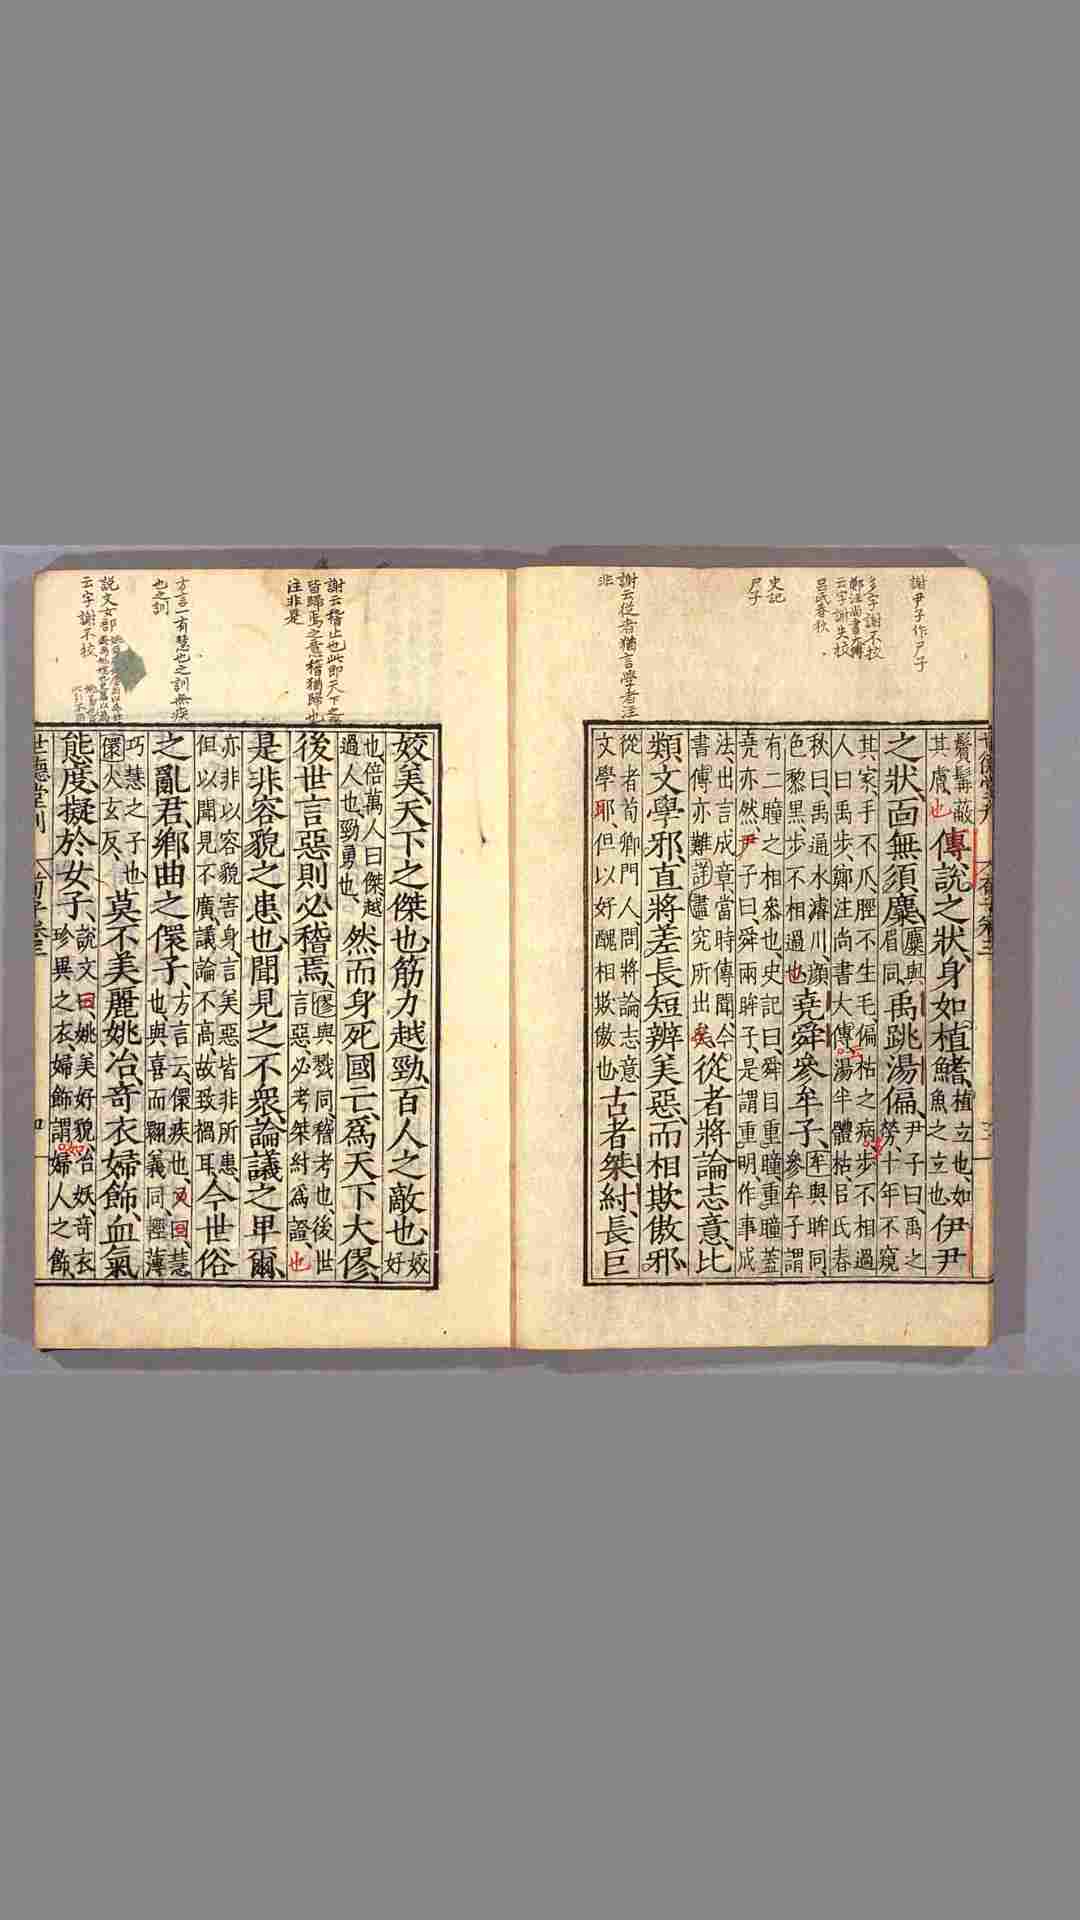 謝尹子作尸子
鄭注尚書大傳
云字謝失校
呂氏春秋
史記
尸子
謝云從者猶言學者注
非
世德堂刊
鬢髯蔽
其膚也
傳說之狀身如植鰭
植立也如
魚之立也
伊尹
之狀面無須麋
麋與
眉同
禹跳湯偏
尹子曰禹之
勞十年不窺
其家手不爪脛不生毛偏枯之病步不相過
人曰禹步鄭注尚書大傳云湯半體枯呂氏春
秋曰禹通水濬川顏
色黎黑步不相過也
堯舜參牟子
牟與眸同
參牟子謂
有二瞳之相參也史記曰舜目重瞳重瞳蓋
堯亦然尹子曰舜兩眸子是謂重明作事成
法出言成章當時傳聞今
書傳亦難詳盡究所出矣
從者將論志意比
類文學邪直將差長短辨美惡而相欺傲邪
從者荀卿門人問將論志意
文學耶但以好醜相欺傲也
古者桀紂長巨
謝云稽止也此即天下之
皆歸焉之意稽猶歸也
注非是
方言一有慧也之訓無疾
也之訓
說文女部
云字謝不校
姣美天下之傑也筋力越勁百人之敵也
姣
好
也倍萬人曰傑越
過人也勁勇也
然而身死國亡爲天下大僇
後世言惡則必稽焉
僇與戮同稽考也後世
言惡必考桀紂爲證也
是非容貌之患也聞見之不衆論議之卑爾
亦非以容貌害身言美惡皆非所患
但以聞見不廣議論不高故致禍耳
今世俗
之亂君鄉曲之儇子
方言云儇疾也又曰慧
也與喜而翾義同輕薄
巧慧之子也
儇火玄反
莫不美麗姚冶奇衣婦飾血氣
態度擬於女子
說文曰姚美好貌冶妖奇衣
珍異之衣婦飾謂如婦人之飾
世德堂刊
荀子卷三
四